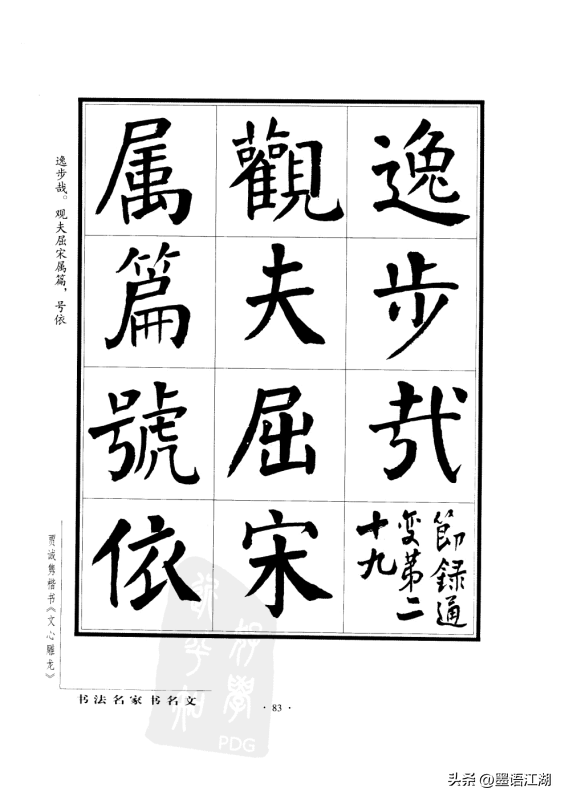 逸步哉
節録通
变第二
十九
觀夫屈宋
属篇號依
逸步哉。观夫屈宋属篇，号依
贾诚隽楷书《文心雕龙》
书法名家书名文
· 83 ·
PDG
头条 @墨语江湖